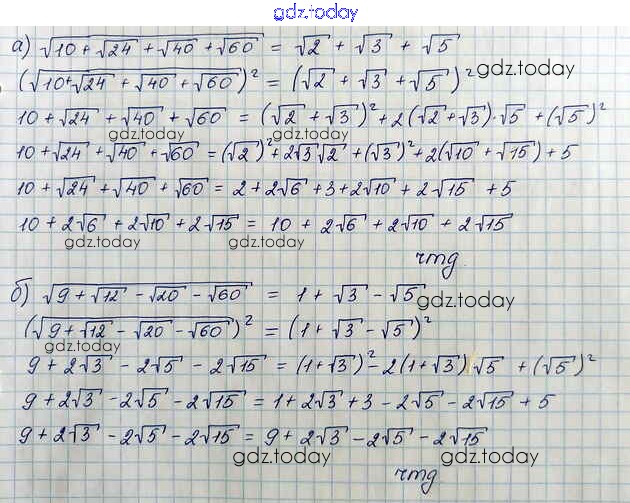 gdz.today
а) √(10 + √24 + √40 + √60) = √2 + √3 + √5
(√(10 + √24 + √40 + √60))² = (√2 + √3 + √5)² gdz.today
10 + √24 + √40 + √60 = (√2 + √3)² + 2(√2 + √3)·√5 + (√5)²
gdz.today gdz.today
10 + √24 + √40 + √60 = (√2)² + 2√3√2 + (√3)² + 2(√10 + √15) + 5
10 + √24 + √40 + √60 = 2 + 2√6 + 3 + 2√10 + 2√15 + 5
10 + 2√6 + 2√10 + 2√15 = 10 + 2√6 + 2√10 + 2√15
gdz.today gdz.today
чтд.
б) √(9 + √12 - √20 - √60) = 1 + √3 - √5 gdz.today
(√(9 + √12 - √20 - √60))² = (1 + √3 - √5)²
gdz.today
9 + 2√3 - 2√5 - 2√15 = (1 + √3)² - 2(1 + √3)√5 + (√5)²
9 + 2√3 - 2√5 - 2√15 = 1 + 2√3 + 3 - 2√5 - 2√15 + 5
9 + 2√3 - 2√5 - 2√15 = 9 + 2√3 - 2√5 - 2√15
gdz.today gdz.today
чтд